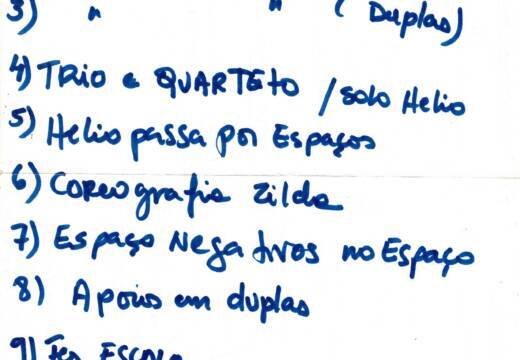 3) " " (Duplas)
4) TRio e QUARTETO / solo Helio
5) Helio passa por Espaços
6) Coreografia Zilda
7) Espaço Negativos no Espaço
8) Apoios em duplas
9) ESCOLA